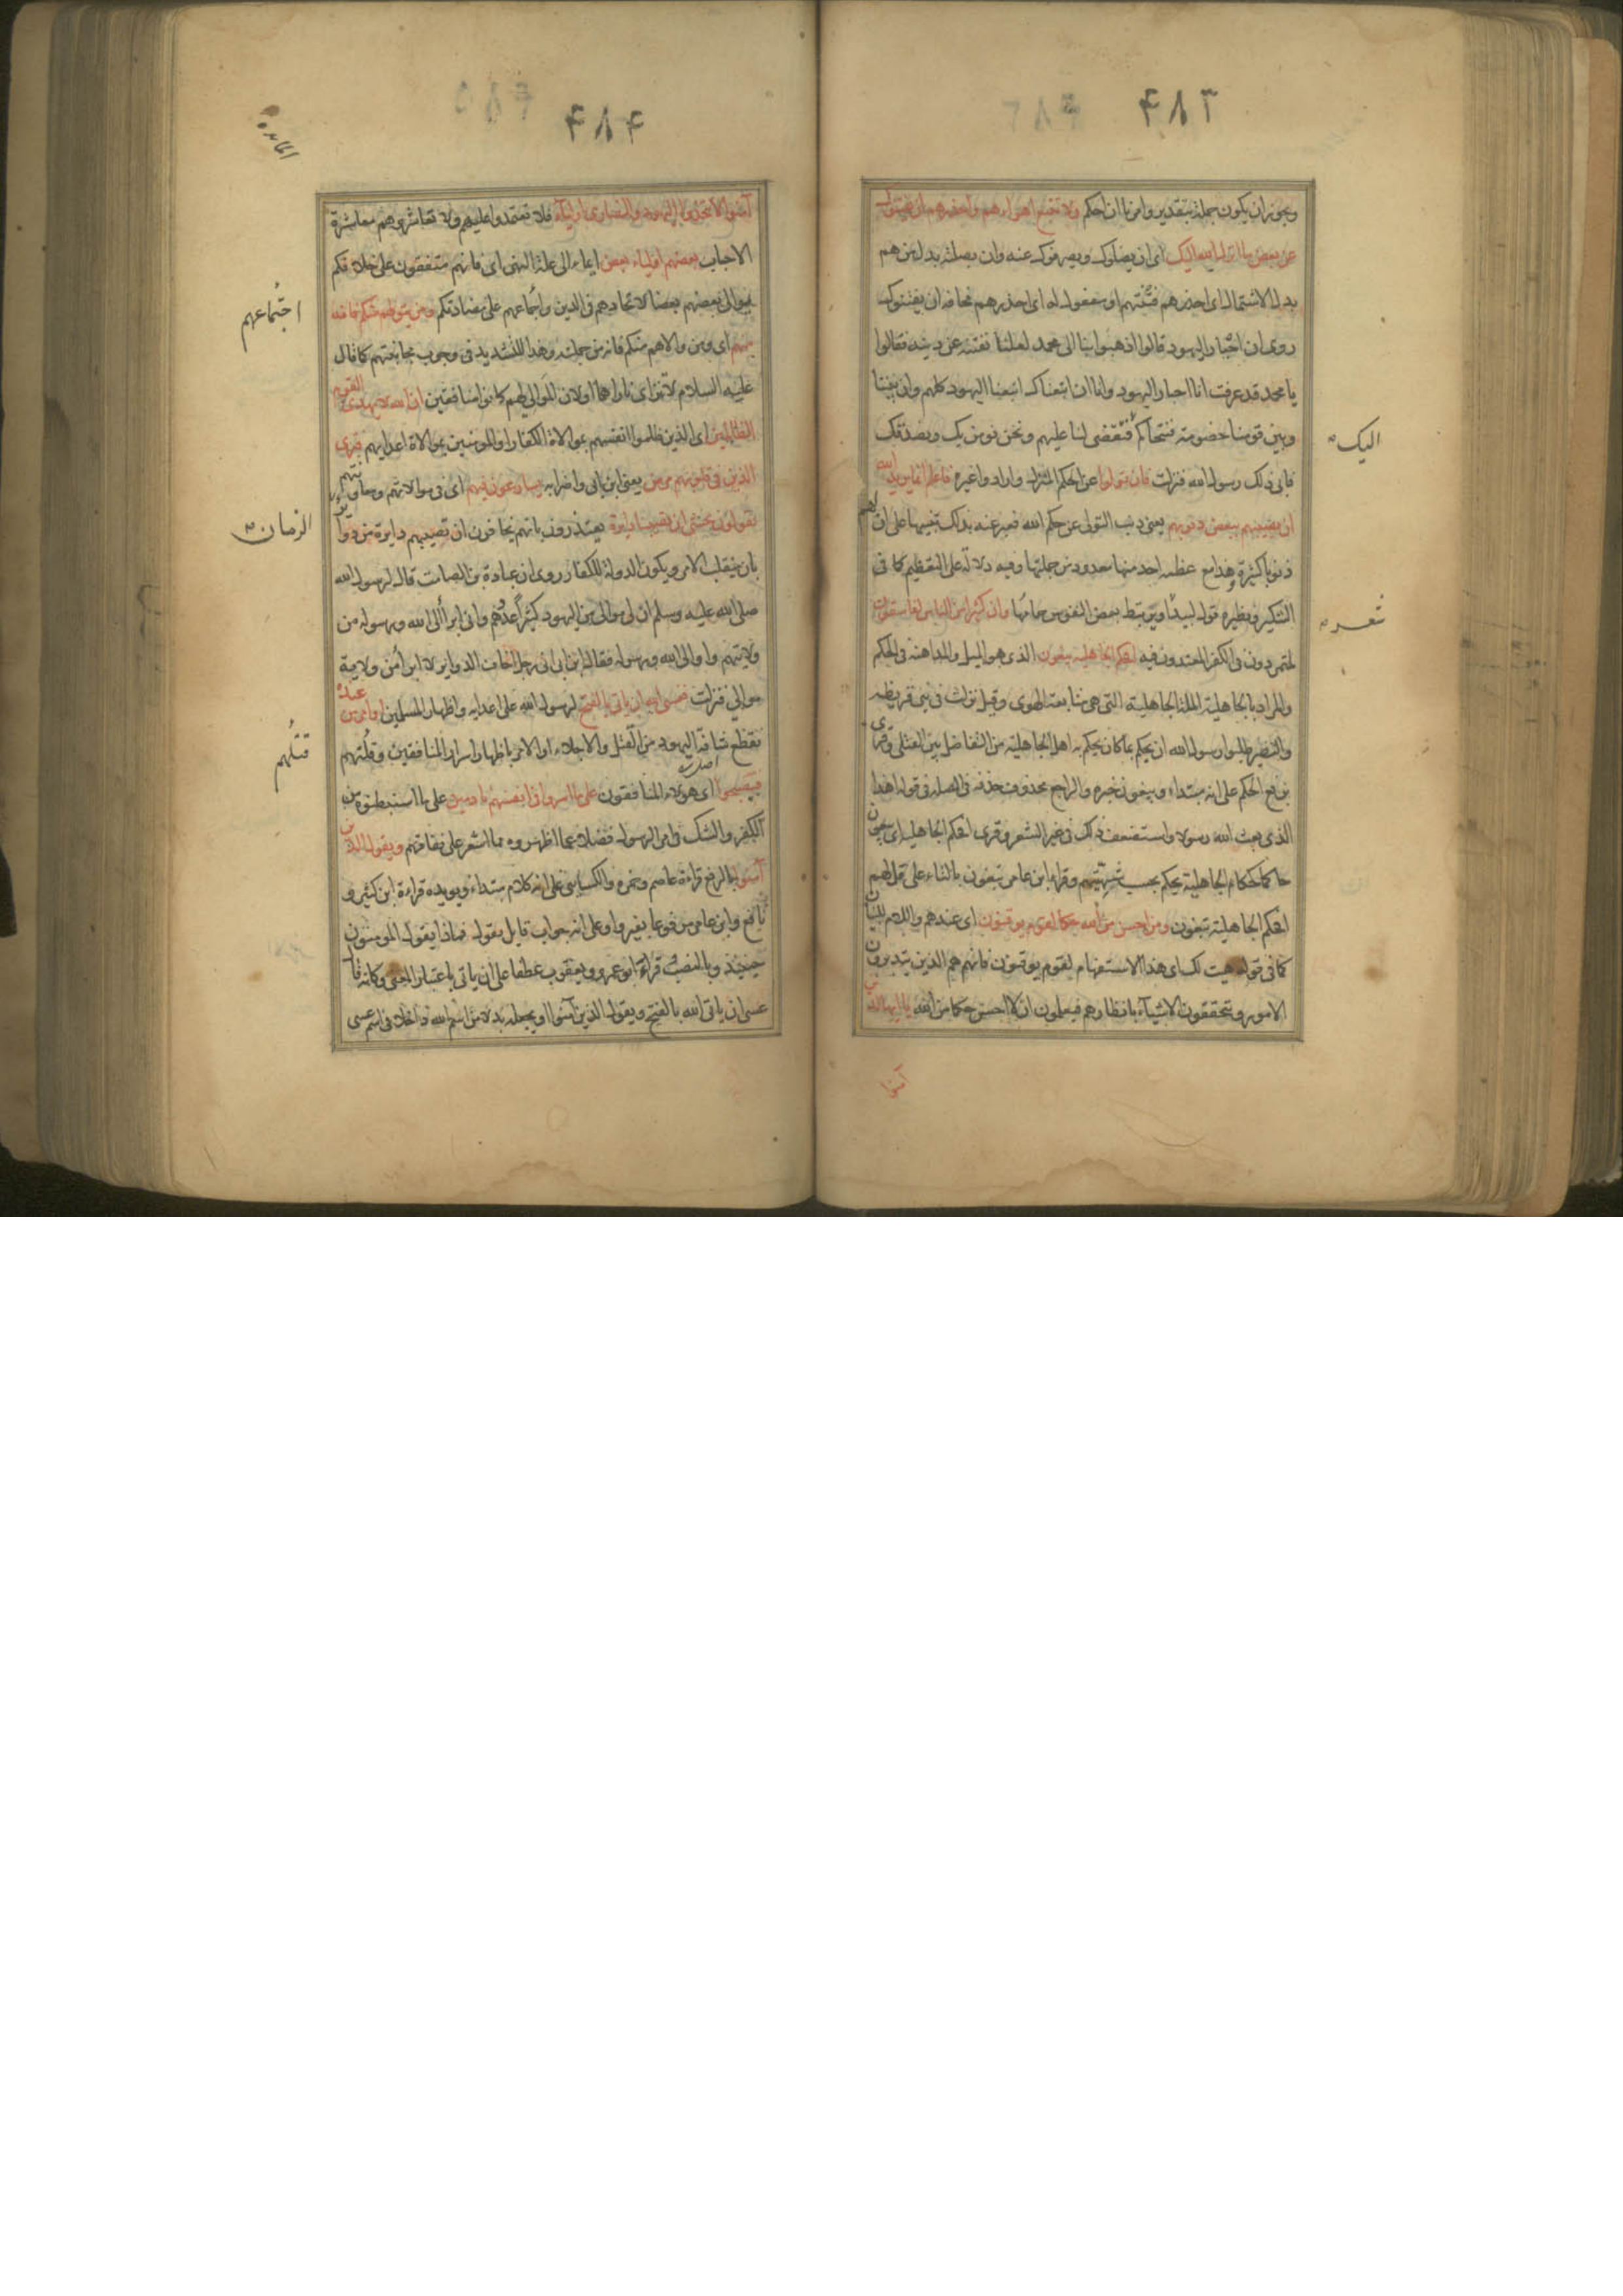 ٤٨٣
ويجوز ان يكون جملة بتقدير وامرنا ان احكم ولا تتبع اهواءهم واحذرهم ان يفتنوك
عن بعض ما انزل الله اليك اى ان يضلوك ويصرفوك عنه وان بصلته بدل من هم
بدل الاشتمال اى احذرهم فتنتهم او مفعول له اى احذرهم مخافة ان يفتنوك
روى ان احبار اليهود قالوا اذهبوا بنا الى محمد لعلنا نفتنه عن دينه فقالوا
يا محمد قد عرفت انا احبار اليهود وانا ان اتبعناك اتبعنا اليهود كلهم وان بيننا
وبين قومنا خصومة فنتحاكم فتقضى لنا عليهم ونحن نومن بك ونصدقك
اليك
فابى ذلك رسول الله فنزلت فان تولوا عن الحكم المنزل وارادوا غيره فاعلم انما يريد الله
ان يصيبهم ببعض ذنوبهم يعنى ذنب التولى عن حكم الله فعبر عنه بذلك تنبيها على ان لهم
ذنوبا كثيرة وهذا مع عظمه احد منها معدود من جملتها وفيه دلالة على التعظيم كما فى
التنكير ونظيره قول لبيد او يرتبط بعض النفوس حمامها وان كثيرا من الناس لفاسقون
شعر
لمتمردون فى الكفر المعتدون فيه افحكم الجاهلية يبغون الذى هو الميل والمداهنة فى الحكم
والمراد بالجاهلية الملة الجاهلية التى هى متابعة الهوى وقيل نزلت فى بنى قريظة
والنضير طلبوا رسول الله ان يحكم بما كان يحكم به اهل الجاهلية من التفاضل بين القتلى وقرى
برفع الحكم على انه مبتداء ويبغون خبره والراجع محذوف حذفه فى الصلة فى قوله اهذا
الذى بعث الله رسولا واستضعف ذلك فى غير الشعر وقرى افحكم الجاهلية اى يبغون
حاكما كحكام الجاهلية يحكم بحسب شهيتهم وقراء ابن عامر تبغون بالتاء على قل لهم
افحكم الجاهلية تبغون ومن احسن من الله حكما لقوم يوقنون اى عندهم واللام للبيان
كما فى قوله هيت لك اى هذا الاستفهام لقوم يوقنون فانهم هم الذين يتدبرون
الامور ويتحققون الاشياء بانظارهم فيعلمون ان لا احسن حكما من الله يا ايها الذين
آمنوا
٤٨٤
المائدة
آمنوا لا تتخذوا اليهود والنصارى اولياء فلا تعتمدوا عليهم ولا تعاشروهم معاشرة
الاحباب بعضهم اولياء بعض ايماء الى علة النهى اى فانهم متفقون على خلافكم
يوالى بعضهم بعضا لاتحادهم فى الدين واجماعهم على مضادتكم ومن يتولهم منكم فانه
اجتماعهم
منهم اى ومن والاهم منكم فانه من جملتهم وهذا للتشديد فى وجوب مجانبتهم كما قال
عليه السلام لا تتراى ناراهما او لان الموالى لهم كانوا منافقين ان الله لا يهدى القوم
الظالمين اى الذين ظلموا انفسهم بموالاة الكفار او المومنين بموالاة اعدايهم فترى
الذين فى قلوبهم مرض يعنى ابن ابى واضرابه يسارعون فيهم اى فى موالاتهم ومعاونتهم
يقولون نخشى ان تصيبنا دايرة يعتذرون بانهم يخافون ان تصيبهم دايرة من دواير
الزمان
بان ينقلب الامر ويكون الدولة للكفار روى ان عبادة بن الصامت قال لرسول الله
صلى الله عليه وسلم ان لى موالى من اليهود كثيرا عددهم وانى ابرأ الى الله ورسوله من
ولايتهم واوالى الله ورسوله فقال ابن ابى انى رجل اخاف الدواير لا ابرأ من ولاية
موالى فنزلت فعسى الله ان ياتى بالفتح لرسول الله على اعدايه واظهار المسلمين او امر من عنده
يقطع شافة اليهود من القتل والاجلاء او الامر باظهار اسرار المنافقين وقتلهم
قتلهم
فيصبحوا اى هؤلاء المنافقون على ما اسروا فى انفسهم نادمين على ما استبطنوه من
الكفر والشك فى امر الرسول فضلا عما اظهروه مما اشعر على نفاقهم ويقول الذين
آمنوا بالرفع قراءة عاصم وحمزه والكسائى على انه كلام مبتداء ويويده قراءة ابن كثير و
نافع وابن عامر مرفوعا بغير واو على انه جواب قايل يقول فماذا يقول المومنون
حينئذ وبالنصب قراءة ابو عمرو ويعقوب عطفا على ان ياتى باعتبار المعنى وكانه قال
عسى ان ياتى الله بالفتح ويقول الذين آمنوا او بجعله بدلا من اسم الله داخلا فى اسم عسى